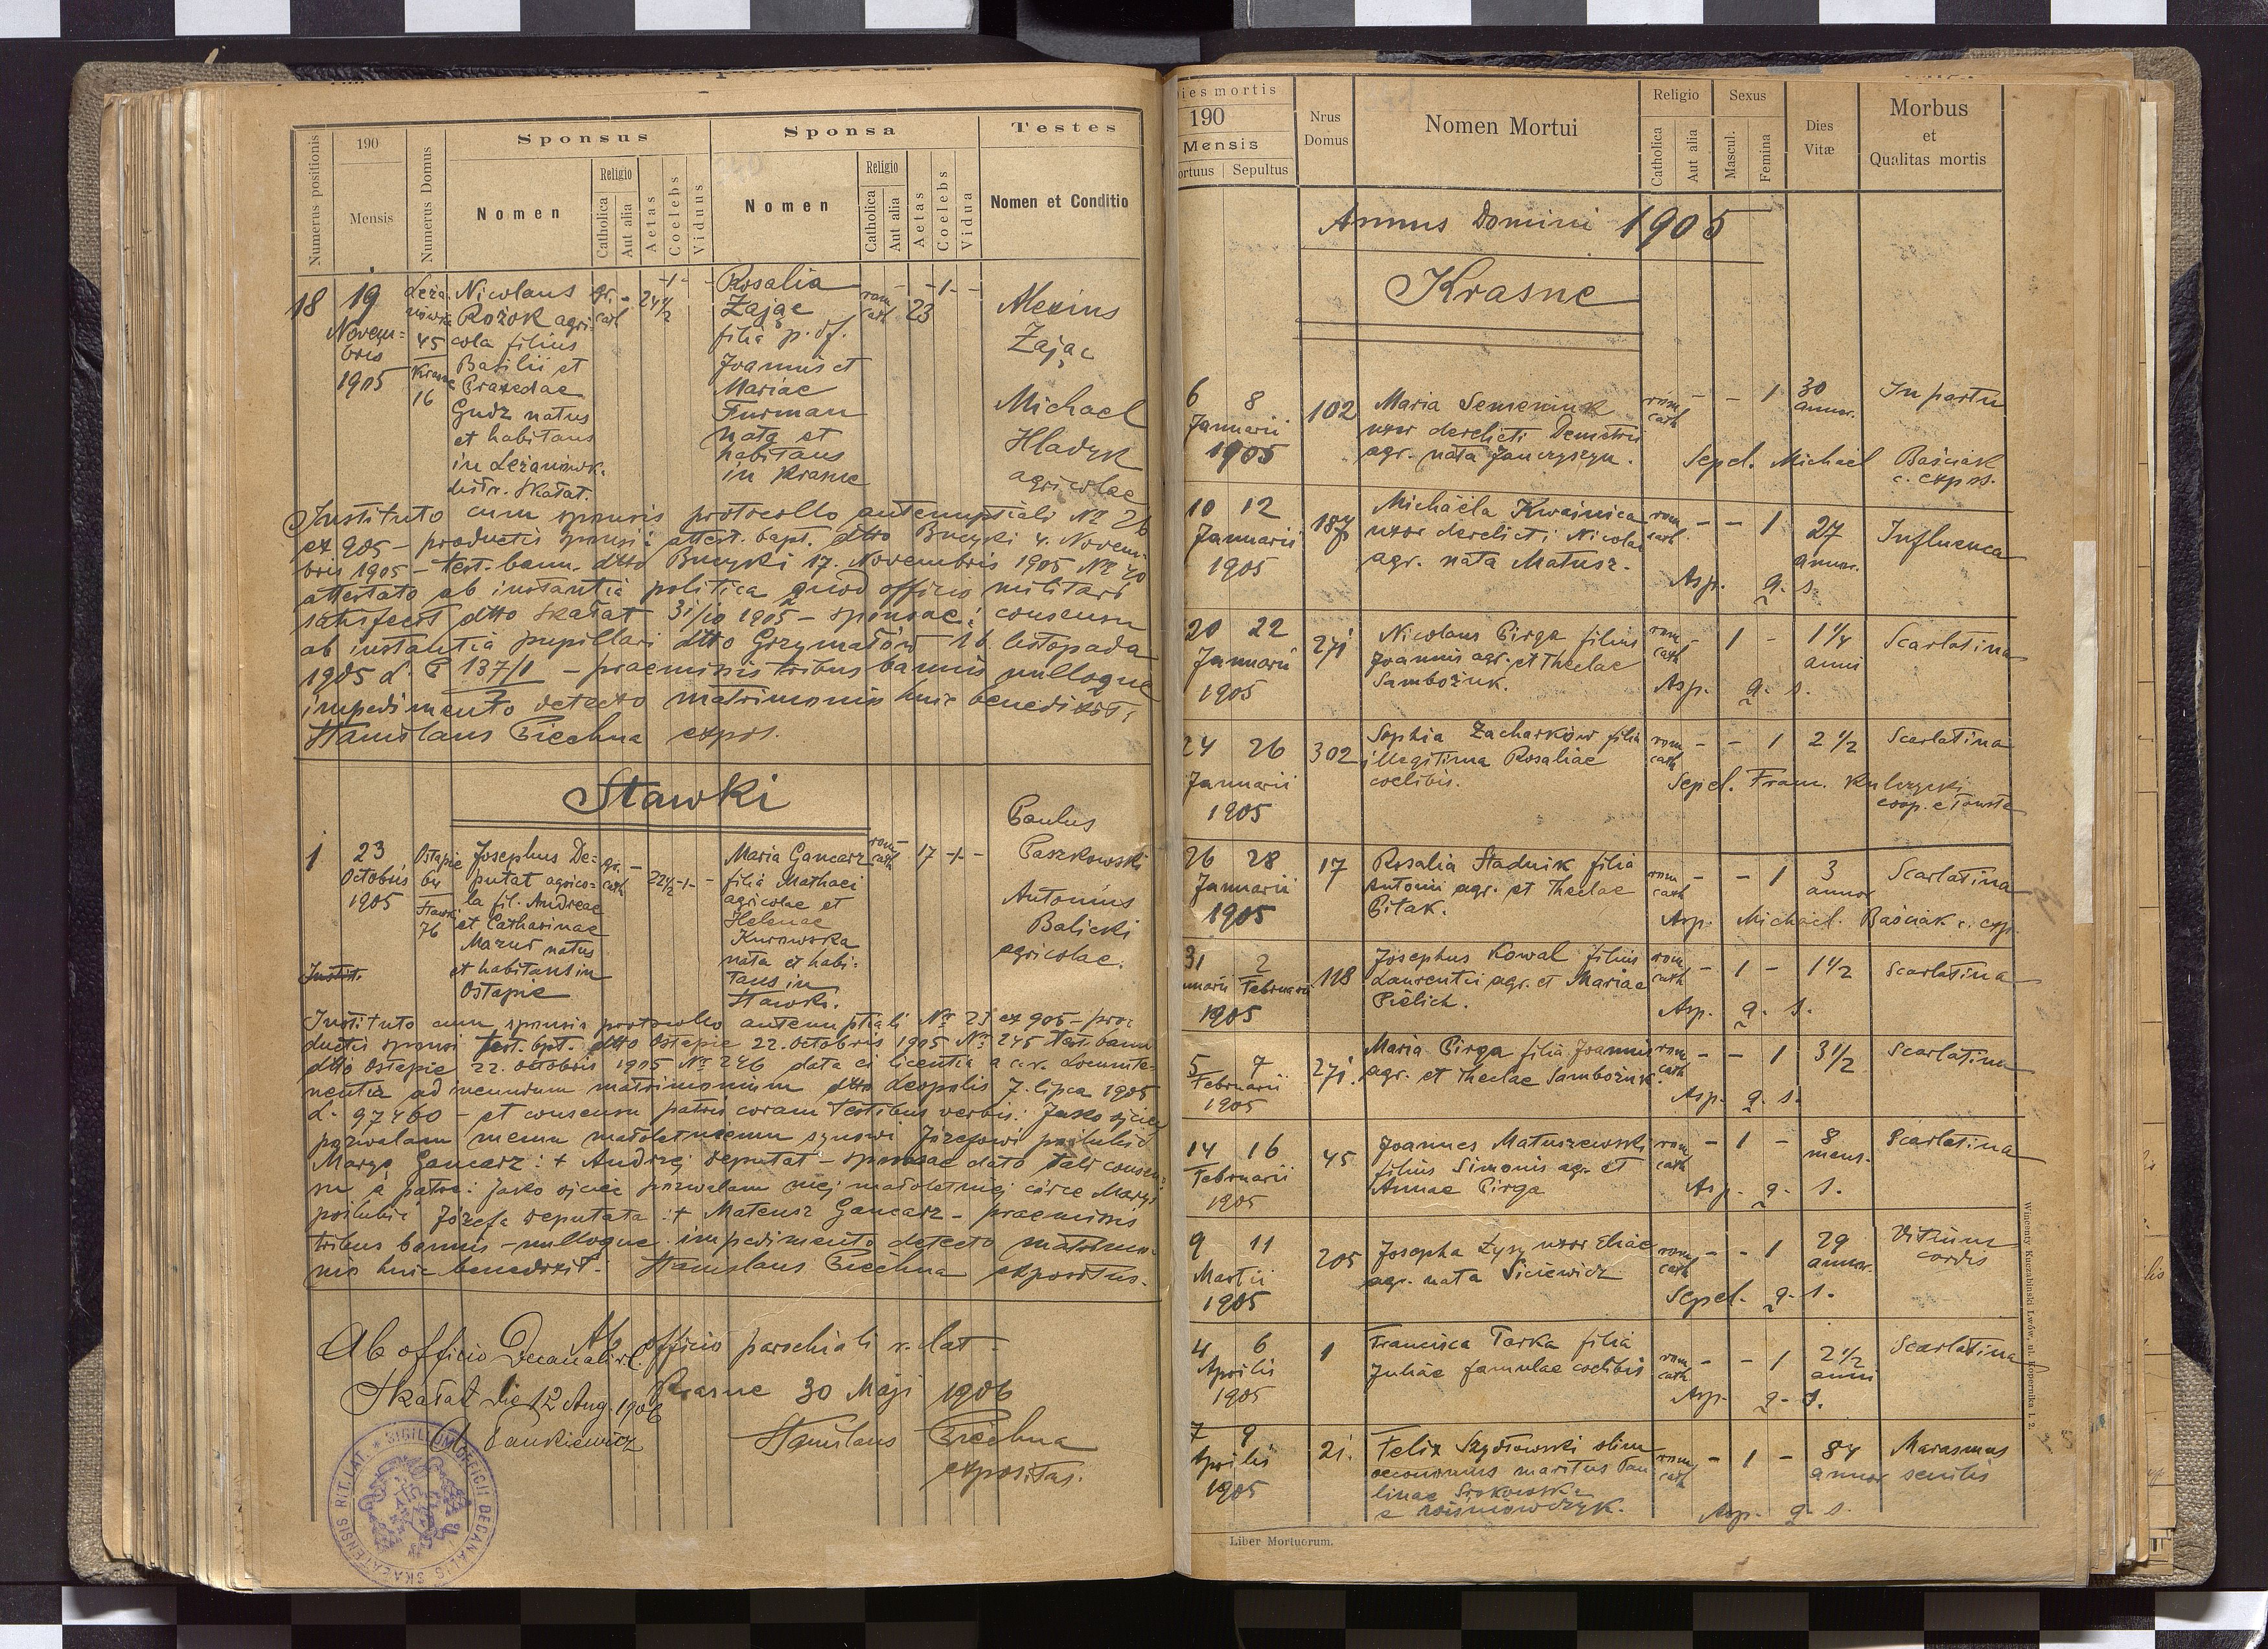 Numerus positionis
190
Mensis
Numerus Domus
Sponsus
Nomen
Religio
Catholica
Aut alia
Aetas
Coelebs
Viduus
Sponsa
Nomen
Religio
Catholica
Aut alia
Aetas
Coelebs
Vidua
Testes
Nomen et Conditio
18
19
Novem-
bris
1905
45
Krasne
16
Nicolaus
Rożok agri-
cola filius
Basilii et
Praxedae
Gudz natus
et habitans
in Leżanówk.
distr. Skałat.
gr.
cath
24 1/2
-1-
Rosalia
Zając
filia p. df.
Joannis et
Mariae
Furman
nata et
habitans
in Krasne
rom
cath
23
-1-
Alexius
Zając
Michael
Hladyk
agricolae
Instituto cum sponsis protocollo antenuptiali No 26
ex 905 - productis sponsi: attest. bapt. dtto Bucyki 4. Novem-
bris 1905 - test. bann. dtto Bucyki 17. Novembris 1905 No 40
attestato ab instantia politica quod officio militari
satisfecit dtto Skałat 31/10 1905 - sponsae: consensu
ab instantia pupillari dtto Grzymałów 16. listopada
1905 L. P 137/1 - praemissis tribus bannis nulloque
impedimento detecto matrimonio huic benedixit:
Stanislaus Piechna expos.
Stawki
1
23
Octobris
1905
Ostapie
64
Stawki
76
Josephus De-
putat agrico-
la fil. Andreae
et Catharinae
Mazur natus
et habitans in
Ostapie
gr.
cath
22 1/2 -1-
Maria Gancarz
filia Mathaei
agricolae et
Helenae
Kurowska
nata et habi-
tans in
Stawki.
rom
cath
17 -1-
Paulus
Paszkowski
Antonius
Balicki
agricolae.
Instit.
Instituto cum sponsis protocollo antenuptiali No 23 ex 905 - pro-
ductis sponsi test. bpt. dtto Ostapie 22. Octobris 1905 No 245 test. bann
dtto Ostapie 22. Octobris 1905 No 246 data ei licentia a c. r. Locumte-
nentia ad ineundum matrimonium dtto Leopolis 7. lipca 1905
L. 97460 - et consensu patris coram testibus verbis: Jako ojciec
pozwalam memu małoletniemu synowi Józefowi poślubić
Maryę Gancarz: + Andrzej Deputat - sponsae dato tali consen-
su a patre: Jako ojciec pozwalam mej małoletniej córce Maryi
poślubić Józefa Deputata: + Mateusz Gancarz - praemissis
tribus bannis - nulloque impedimento detecto matrimo-
nio huic benedixit: Stanislaus Piechna expositus.
Ab officio Decanali r.l.
Skałat die 12 Aug. 1906
Ab officio parochiali r. lat -
Krasne 30 Maji 1906
Stanislaus Piechna
expositus.
SIGILLUM OFFICII DECANALIS SKAŁATENSIS RIT. LAT.
Dies mortis
190
Mensis
Mortuus
Sepultus
Nrus
Domus
Nomen Mortui
Religio
Catholica
Aut alia
Sexus
Mascul.
Femina
Dies
Vitæ
Morbus
et
Qualitas mortis
Annus Domini 1905
Krasne
6 8
Januarii
1905
102
Maria Semeniuk
uxor derelicti Demetrii
agr. nata Janczyszyn.
rom
cath
- - 1
30
annor.
In partu
Sepel. Michael Baściak
c. expos.
10 12
Januarii
1905
187
Michaëla Kwaśnica
uxor derelicti Nicolai
agr. nata Matusz.
rom
cath
- - 1
27
annor.
Influenca
Asp. q. s.
20 22
Januarii
1905
271
Nicolaus Pirga filius
Joannis agr. et Theclae
Sambożuk.
rom
cath
- 1 -
1 1/4
anni
Scarlatina
Asp. q. s.
24 26
Januarii
1905
302
Sophia Zacharków filia
illegitima Rosaliae
coelibis.
rom
cath
- - 1
2 1/2
Scarlatina
Sepel. Franc. Kulczycki
coop. e Touste
26 28
Januarii
1905
17
Rosalia Stadnik filia
Antonii agr. et Theclae
Pitak.
rom
cath
- - 1
3
annor
Scarlatina
Asp. Michael. Baściak c. exp.
31 2
Januarii Februarii
1905
118
Josephus Kowal filius
Laurentii agr. et Mariae
Pielich.
rom
cath
- 1 -
1 1/2
Scarlatina
Asp. q. s.
5 7
Februarii
1905
271.
Maria Pirga filia Joannis
agr. et Theclae Sambożuk.
rom
cath
- - 1
3 1/2
Scarlatina
Asp. q. s.
14 16
Februarii
1905
45
Joannes Matuszewski
filius Simonis agr. et
Annae Pirga
rom
cath
- 1 -
8
mens.
Scarlatina
Asp. q. s.
9 11
Martii
1905
205
Josepha Łysy uxor Eliae
agr. nata Siciewicz
rom
cath
- - 1
29
annor.
Vitium
cordis
Sepel. q. s.
4 6
Aprilis
1905
1
Francisca Tarka filia
Juliae famulae coelibis
rom
cath
- - 1
2 1/2
anni
Scarlatina
Asp. q. s.
7 9
Aprilis
1905
21.
Felix Szydłowski olim
oeconomus maritus Pau-
linae
e Wiśniowczyk.
rom
cath
- 1 -
84
annor
Marasmus
senilis
Asp. q. s.
Liber Mortuorum.
Wincenty Kuczabiński Lwów, ul. Kopernika l. 2.